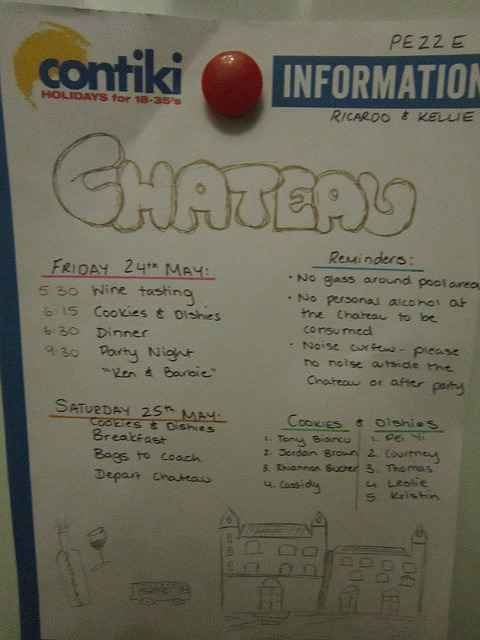 PEZZE
contiki
HOLIDAYS for 18-35's
INFORMATION
RICARDO & KELLIE
CHATEAU
FRIDAY 24th MAY:
5:30 Wine tasting
6:15 Cookies & Dishies
6:30 Dinner
9:30 Party Night
"Ken & Barbie"
SATURDAY 25th MAY:
Cookies & Dishies
Breakfast
Bags to coach
Depart Chateau
Reminders:
• No glass around pool area
• No personal alcohol at
the Chateau to be
consumed
• Noise curfew - please
no noise outside the
Chateau or after party
COOKIES & DISHIES
1. Tony Bianco
2. Jordan Brown
3. Rhiannon Bucher
4. Cassidy
1. Pei Yi
2. Courtney
3. Thomas
4. Leslie
5. Kristin